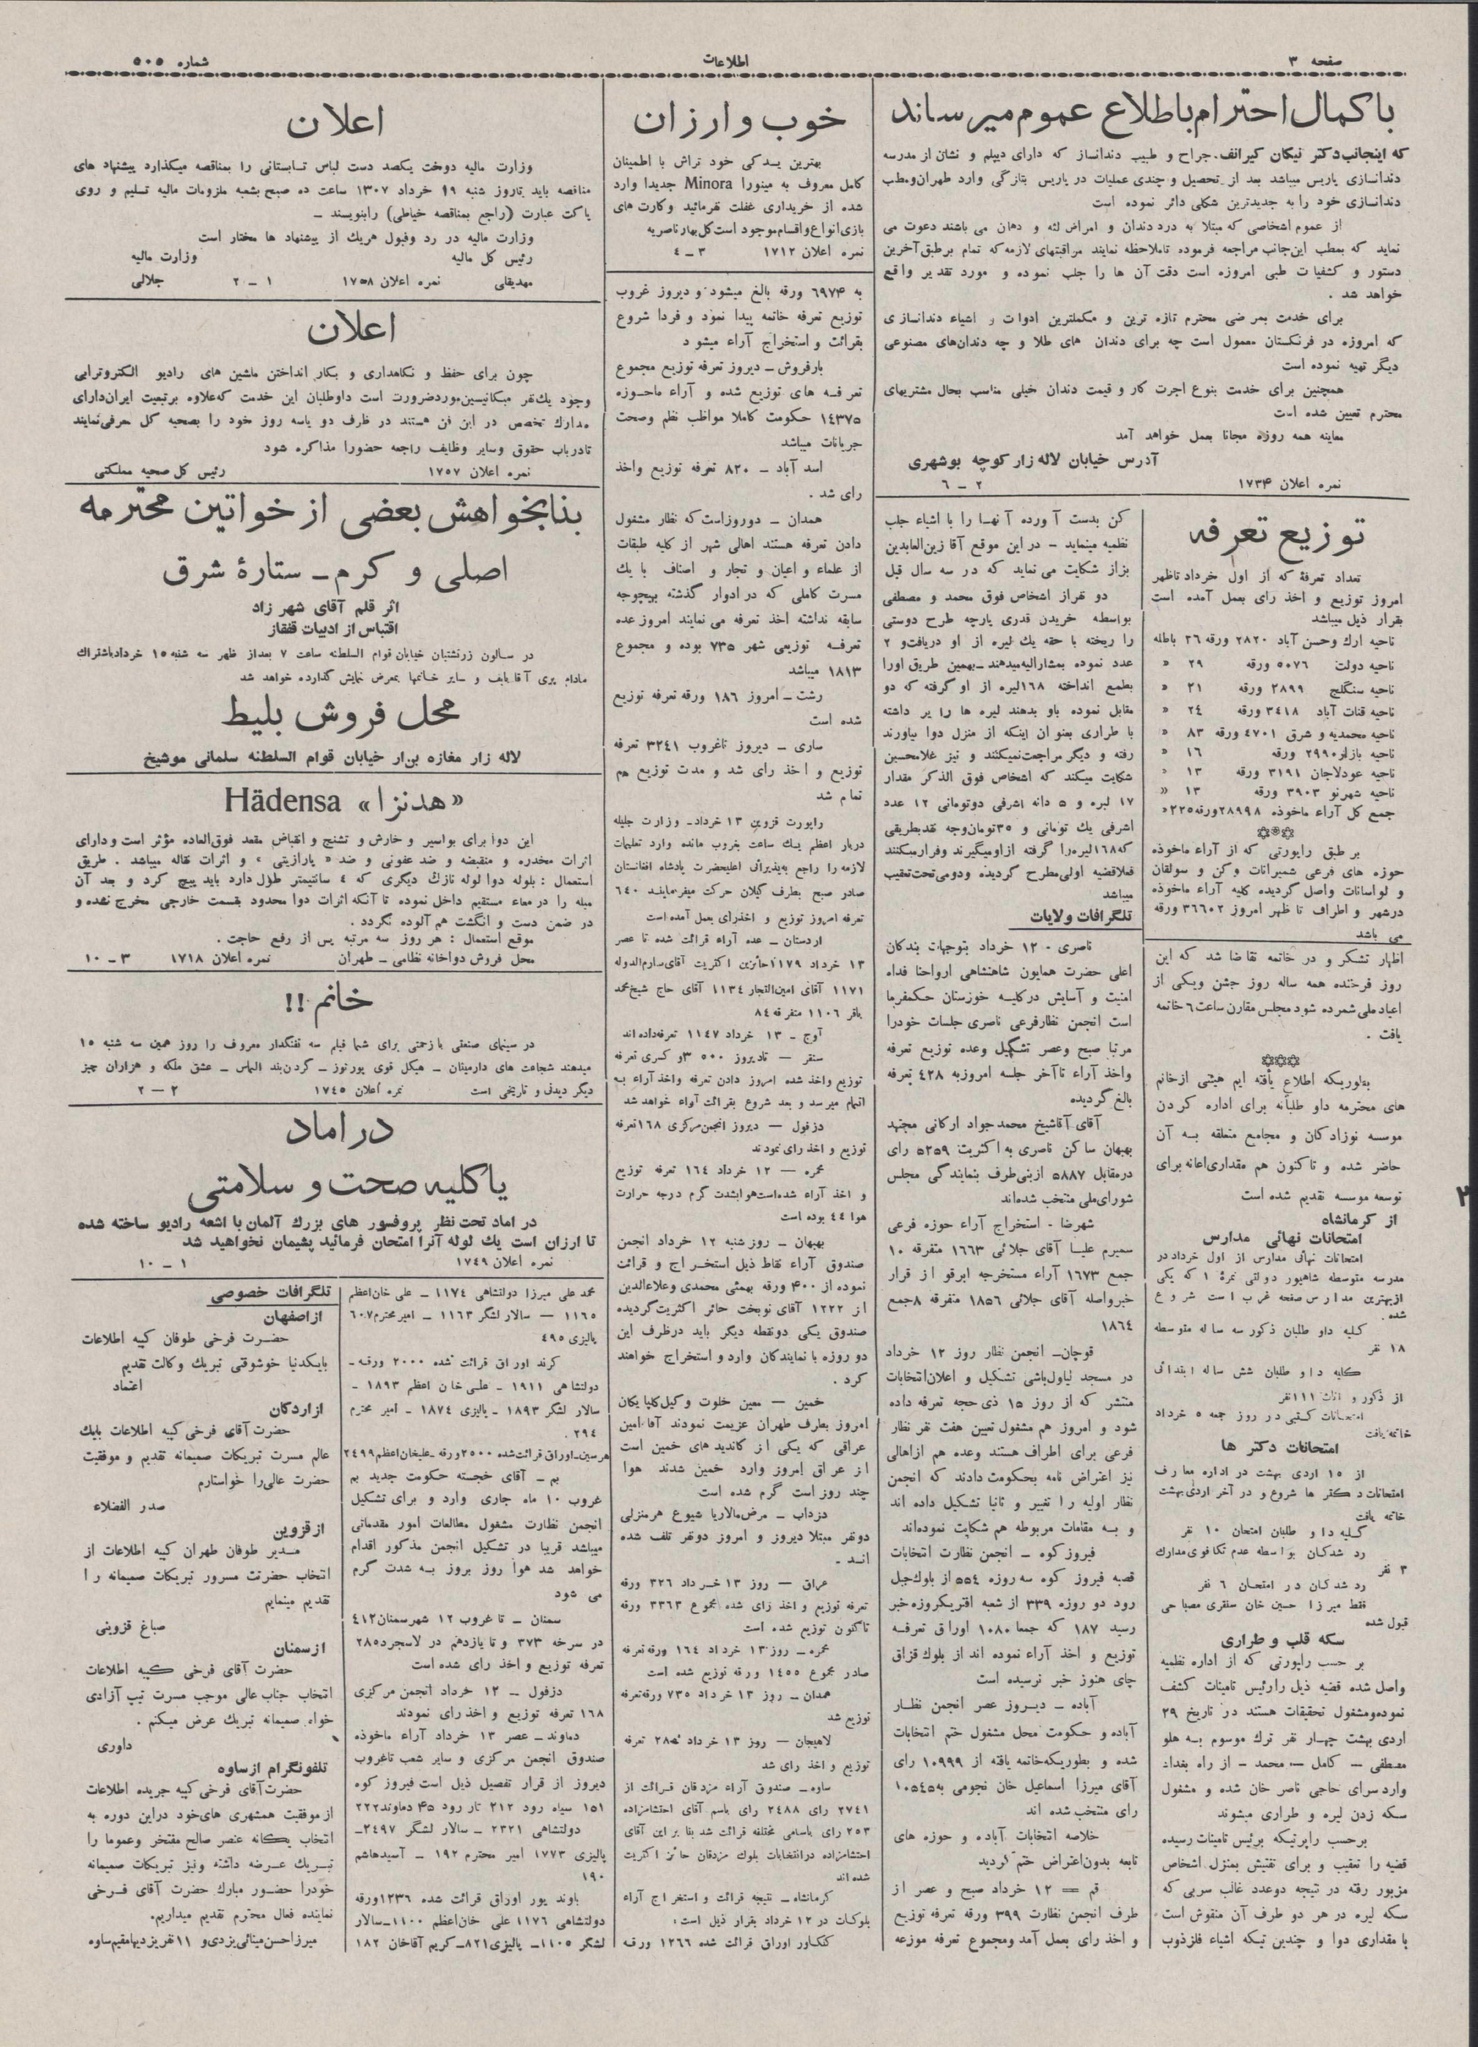 صفحه ۳
اطلاعات
شماره ۵۰۵
با کمال احترام باطلاع عموم میرساند
که اینجانب دکتر نیکان کیرانف، جراح و طبیب دندانساز که دارای دیپلم و نشان از مدرسه
دندانسازی پاریس میباشد بعد از تحصیل و چندی عملیات در پاریس بتازگی وارد طهران و مطب
دندانسازی خود را به جدیدترین شکلی دائر نموده است
از عموم اشخاصی که مبتلا به درد دندان و امراض لثه و دهان می باشند دعوت می
نماید که بمطب این‌جانب مراجعه فرموده تا ملاحظه نمایند مراقبتهای لازمه که تمام بر طبق آخرین
دستور و کشفیات طبی امروزه است دقت آن ها را جلب نموده و مورد تقدیر واقع
خواهد شد .
برای خدمت بمرضی محترم تازه ترین و مکملترین ادوات و اشیاء دندانسازی
که امروزه در فرنگستان معمول است چه برای دندان های طلا و چه دندان‌های مصنوعی
دیگر تهیه نموده است
همچنین برای خدمت بنوع اجرت کار و قیمت دندان خیلی مناسب بحال مشتریهای
محترم تعیین شده است
معاینه همه روزه مجانا بعمل خواهد آمد
آدرس خیابان لاله زار کوچه بوشهری
نمره اعلان ۱۷۳۴ ۲ – ۶
توزیع تعرفه
تعداد تعرفهٔ که از اول خرداد تا ظهر
امروز توزیع و اخذ رای بعمل آمده است
بقرار ذیل میباشد
ناحیه ارك وحسن آباد ۲۸۲۰ ورقه ۲۶ باطله
ناحیه دولت ۵۰۷۶ ورقه ۲۹ «
ناحیه سنگلج ۲۸۹۹ ورقه ۲۱ «
ناحیه قنات آباد ۳۴۱۸ ورقه ۲۴ «
ناحیه محمدیه و شرق ۴۷۰۱ ورقه ۸۳ «
ناحیه بازار ۲۹۹۰ ورقه ۱۶ «
ناحیه عودلاجان ۳۱۹۱ ورقه ۱۳ «
ناحیه شهرنو ۳۹۰۳ ورقه ۱۳ «
جمع کل آراء ماخوذه ۲۸۹۹۸ ورقه ۲۲۵ «
بر طبق راپورتی که از آراء ماخوذه
حوزه های فرعی شمیرانات وکن و سولقان
و لواسانات واصل گردیده کلیه آراء ماخوذه
درشهر و اطراف تا ظهر امروز ۳۶۶۰۲ ورقه
می باشد
اظهار تشکر و در خاتمه تقاضا شد که این
روز فرخنده همه ساله روز جشن ویکی از
اعیاد ملی شمرده شود مجلس مقارن ساعت ۶ خاتمه
یافت .
بطوریکه اطلاع یافته ایم هیئتی از خانم
های محترمه داو طلبانه برای اداره کردن
موسسه نوزادکان و مجامع متعلقه به آن
حاضر شده و تاکنون هم مقداری اعانه برای
توسعه موسسه تقدیم شده است
از کرمانشاه
امتحانات نهائی مدارس
امتحانات نهائی مدارس از اول خرداد در
مدرسه متوسطه شاهپور دولتی نمرهٔ ۱ که یکی
از بهترین مدارس صفحه غرب است شروع
شده .
کلیه داو طلبان ذکور سه ساله متوسطه
۱۸ نفر
کلیه داو طلبان شش ساله ابتدائی
از ذکور و اناث ۱۱۱ نفر
امتحانات کتبی در روز جمعه ۵ خرداد
خاتمه یافت
امتحانات دکتر ها
از ۱۵ اردی بهشت در اداره معارف
امتحانات دکتر ها شروع و در آخر اردی بهشت
خاتمه یافت
کلیه داو طلبان امتحان ۱۰ نفر
رد شدکان بواسطه عدم تکافوی مدارك
۳ نفر
رد شدکان در امتحان ۶ نفر
فقط میرزا حسین خان سنقری مصباحی
قبول شده
سکه قلب و طراری
بر حسب راپورتی که از اداره نظمیه
واصل شده قضیه ذیل را رئیس تامینات کشف
نموده و مشغول تحقیقات هستند در تاریخ ۲۹
اردی بهشت چهار نفر ترك موسوم به هلو
مصطفی – کامل – محمد – از راه بغداد
وارد سرای حاجی ناصر خان شده و مشغول
سکه زدن لیره و طراری میشوند
برحسب راپرتیکه برئیس تامینات رسیده
قضیه را تعقیب و برای تفتیش بمنزل اشخاص
مزبور رفته در نتیجه دوعدد غالب سربی که
سکه لیره در هر دو طرف آن منقوش است
با مقداری دوا و چندین تیکه اشیاء فلزذوب
کن بدست آورده آنها را با اشیاء جلب
نظمیه مینماید – در این موقع آقا زین‌العابدین
بزاز شکایت می نماید که در سه سال قبل
دو نفر از اشخاص فوق محمد و مصطفی
بواسطه خریدن قدری پارچه طرح دوستی
را ریخته با حقه یك لیره از او دریافت و ۲
عدد نموده بمشارالیه میدهند – بهمین طریق او را
بطمع انداخته ۱۶۸ لیره از او گرفته که دو
مقابل نموده باو بدهند لیره ها را بر داشته
با طراری بعنوان اینکه از منزل دوا بیاورند
رفته و دیگر مراجعت نمیکنند و نیز غلامحسین
شکایت میکند که اشخاص فوق الذکر مقدار
۱۷ لیره و ۵ دانه اشرفی دوتومانی ۱۲ عدد
اشرفی یك تومانی و ۳۵ تومان وجه نقد بطریقی
که ۱۶۸ لیره را گرفته از او میگیرند و فرار میکنند
فعلا قضیه اولی مطرح گردیده و دومی تحت تعقیب
میباشد
تلگرافات ولایات
ناصری – ۱۲ خرداد بتوجهات بندکان
اعلی حضرت همایون شاهنشاهی ارواحنا فداه
امنیت و آسایش در کلیه خوزستان حکمفرما
است انجمن نظار فرعی ناصری جلسات خود را
مرتبا صبح وعصر تشکیل وعده توزیع تعرفه
واخذ آراء تا آخر جلسه امروز به ۴۲۸ تعرفه
بالغ گردیده
آقای آقا شیخ محمد جواد ارکانی مجتهد
بهبهان ساکن ناصری به اکثریت ۵۲۵۹ رای
در مقابل ۵۸۸۷ از بنی طرف بنمایندگی مجلس
شورای ملی منتخب شده‌اند
شهرضا - استخراج آراء حوزه فرعی
سمیرم علیا آقای جلائی ۱۶۶۳ متفرقه ۱۰
جمع ۱۶۷۳ آراء مستخرجه ابرقو از قرار
خبر واصله آقای جلائی ۱۸۵۶ متفرقه ۸ جمع
۱۸۶۴
قوچان– انجمن نظار روز ۱۲ خرداد
در مسجد لیاول‌باشی تشکیل و اعلان انتخابات
منتشر که از روز ۱۵ ذی حجه تعرفه داده
شود و امروز هم مشغول تعیین هفت نفر نظار
فرعی برای اطراف هستند وعده هم از اهالی
نیز اعتراض نامه بحکومت دادند که انجمن
نظار اولیه را تغییر و ثانیا تشکیل داده اند
و به مقامات مربوطه هم شکایت نموده‌اند
فیروز کوه – انجمن نظارت انتخابات
قصبه فیروز کوه سه روزه ۵۵۴ از بلوك حبل
رود دو روزه ۳۳۹ از شعبه افتر یکروزه خبر
رسید ۱۸۷ که جمعا ۱۰۸۰ اوراق تعرفه
توزیع و اخذ آراء نموده اند از بلوك قزاق
چای هنوز خبر نرسیده است
آباده – دیروز عصر انجمن نظار
آباده و حکومت محل مشغول ختم انتخابات
شده و بطوریکه خاتمه یافته از ۱۰۹۹۹ رای
آقای میرزا اسماعیل خان نجومی به ۱۰۵۴۵
رای منتخب شده اند
خلاصه انتخابات آباده و حوزه های
تابعه بدون اعتراض ختم گردید
قم = ۱۲ خرداد صبح و عصر از
طرف انجمن نظارت ۳۹۹ ورقه تعرفه توزیع
و اخذ رای بعمل آمد ومجموع تعرفه موزعه
خوب و ارزان
بهترین یدکی خود تراش با اطمینان
کامل معروف به مینورا Minora جدیدا وارد
شده از خریداری غفلت نفرمائید وکارت های
بازی انواع و اقسام موجود است کل بهار ناصریه
نمره اعلان ۱۷۱۲ ۳ – ۴
به ۶۹۷۴ ورقه بالغ میشود و دیروز غروب
توزیع تعرفه خاتمه پیدا نمود و فردا شروع
بقرائت و استخراج آراء میشود
بارفروش – دیروز تعرفه توزیع مجموع
تعرفه های توزیع شده و آراء ماخوزه
۱۴۳۷۵ حکومت کاملا مواظب نظم وصحت
جریانات میباشد
اسد آباد – ۸۲۰ تعرفه توزیع واخذ
رای شد .
همدان – دو روز است که نظار مشغول
دادن تعرفه هستند اهالی شهر از کلیه طبقات
از علماء و اعیان و تجار و اصناف با یك
مسرت کاملی که در ادوار گذشته بهیچوجه
سابقه نداشته اخذ تعرفه می نمایند امروز عده
تعرفه توزیعی شهر ۷۳۵ بوده و مجموع
۱۸۱۳ میباشد
رشت – امروز ۱۸۶ ورقه تعرفه توزیع
شده است
ساری – دیروز تا غروب ۳۲۴۱ تعرفه
توزیع و اخذ رای شد و مدت توزیع هم
تمام شد
راپورت قزوین ۱۳ خرداد– وزارت جلیله
دربار اعظم یك ساعت بغروب مانده وارد تعلیمات
لازمه را راجع به پذیرائی اعلیحضرت پادشاه افغانستان
صادر صبح بطرف گیلان حرکت میفرمایند ۶۴۰
تعرفه امروز توزیع و اخذ رای بعمل آمده است
اردستان – عده آراء قرائت شده تا عصر
۱۳ خرداد ۱۱۷۹ حائزین اکثریت آقای سارم‌الدوله
۱۱۷۱ آقای امین‌التجار ۱۱۳۴ آقای حاج شیخ محمد
باقر ۱۱۰۶ متفرقه ۸۴
آوج – ۱۳ خرداد ۱۱۴۷ تعرفه داده اند
سنقر – تا دیروز ۳۵۰۰ و کسری تعرفه
توزیع واخذ شده امروز دادن تعرفه واخذ آراء به
اتمام میرسد و بعد شروع بقرائت آراء خواهد شد
دزفول – دیروز انجمن مرکزی ۱۶۸ تعرفه
توزیع و اخذ رای نمودند
محمره – ۱۲ خرداد ۱۶۴ تعرفه توزیع
و اخذ آراء شده است هوا بشدت گرم درجه حرارت
هوا ۴۴ بوده است
بهبهان – روز شنبه ۱۲ خرداد انجمن
صندوق آراء نقاط ذیل استخراج و قرائت
نموده از ۴۰۰ ورقه بهمئی محمدی وعلاءالدین
از ۱۲۲۲ آقای نوبخت حائز اکثریت گردیده
صندوق یکی دو نقطه دیگر باید در ظرف این
دو روزه با نمایندکان وارد و استخراج خواهند
کرد .
خمین – معین خلوت و کیل کلپایکان
امروز بطرف طهران عزیمت نمودند آقا امین
عراقی که یکی از کاندید های خمین است
از عراق امروز وارد خمین شدند هوا
چند روز است گرم شده است
دزداب – مرض مالاریا شیوع هر منزلی
دونفر مبتلا دیروز و امروز دو نفر تلف شده
اند .
عراق – روز ۱۳ خرداد ۳۲۶ ورقه
تعرفه توزیع و اخذ رای شده مجموع ۳۳۶۳ ورقه
تا کنون توزیع شده است
محمره – روز ۱۳ خرداد ۱۶۴ ورقه تعرفه
صادر مجموع ۱۴۵۵ ورقه توزیع شده است
همدان – روز ۱۳ خرداد ۷۳۵ ورقه تعرفه
توزیع شد
لاهیجان – روز ۱۳ خرداد تعرفه
توزیع و اخذ رای شد
ساوه – صندوق آراء مزدقان قرائت از
۲۷۴۱ رای ۲۴۸۸ رای باسم آقای احتشام‌زاده
۲۵۳ رای باسامی مختلفه قرائت شد بنا بر این آقای
احتشامزاده در انتخابات بلوك مزدقان حائز اکثریت
شده اند
کرمانشاه – نتیجه قرائت و استخراج آراء
بلوکات در ۱۲ خرداد بقرار ذیل است:
کنکاور اوراق قرائت شده ۱۲۶۶ ورقه
اعلان
وزارت مالیه دوخت یکصد دست لباس تابستانی را بمناقصه میگذارد پیشنهاد های
مناقصه باید تا روز شنبه ۱۹ خرداد ۱۳۰۷ ساعت ده صبح بشعبه ملزومات مالیه تسلیم و روی
پاکت عبارت (راجع بمناقصه خیاطی) رابنویسند –
وزارت مالیه در رد وقبول هریك از پیشنهاد ها مختار است
رئیس کل مالیه وزارت مالیه
مهدیقلی نمره اعلان ۱۷۵۸ ۱ – ۲ جلالی
اعلان
چون برای حفظ و نگاهداری و بکار انداختن ماشین های رادیو الکتروتراپی
وجود یك نفر میکانیسین مورد ضرورت است داوطلبان این خدمت که علاوه بر تبعیت ایران دارای
مدارك تخصص در این فن هستند در ظرف دو یا سه روز خود را بصحیه کل معرفی نمایند
تا درباب حقوق وسایر وظایف راجعه حضورا مذاکره شود
نمره اعلان ۱۷۵۷ رئیس کل صحیه مملکتی
بنا بخواهش بعضی از خواتین محترمه
اصلی و کرم – ستارهٔ شرق
اثر قلم آقای شهر زاد
اقتباس از ادبیات قفقاز
در سالون زرتشتیان خیابان قوام السلطنه ساعت ۷ بعداز ظهر سه شنبه ۱۵ خرداد باشتراك
مادام پری آقا بایف و سایر خانمها بمعرض نمایش گذارده خواهد شد
محل فروش بلیط
لاله زار مغازه بن‌ار خیابان قوام السلطنه سلمانی موشیخ
«هدنزا» Hädensa
این دوا برای بواسیر و خارش و تشنج و انقباض مقعد فوق‌العاده مؤثر است و دارای
اثرات مخدره و منقبضه و ضد عفونی و ضد « پارازیتی » و اثرات نقاله میباشد . طریق
استعمال : بلوله دوا لوله نازك دیگری که ۴ سانتیمتر طول دارد باید پیچ کرد و بعد آن
میله را در معاء مستقیم داخل نموده تا آنکه اثرات دوا محدود بقسمت خارجی مخرج نشده و
در ضمن دست و انگشت هم آلوده نگردد .
موقع استعمال : هر روز سه مرتبه پس از رفع حاجت .
محل فروش دواخانه نظامی – طهران نمره اعلان ۱۷۱۸ ۳ – ۱۰
خانم !!
در سینمای صنعتی با زحمتی برای شما فیلم سه تفنگدار معروف را روز همین سه شنبه ۱۵
میدهند شجاعت های دارمینان – هیکل قوی پورتوز – گردن‌بند الماس – عشق ملکه و هزاران چیز
دیگر دیدنی و تاریخی است نمره اعلان ۱۷۴۵ ۲ – ۲
در اماد
یا کلیه صحت و سلامتی
در اماد تحت نظر پروفسور های بزرك آلمان با اشعه رادیو ساخته شده
تا ارزان است یك لوله آنرا امتحان فرمائید پشیمان نخواهید شد
نمره اعلان ۱۷۴۹ ۱ – ۱۰
محمد علی میرزا دولتشاهی ۱۱۷۴ – علی خان اعظم
۱۱۶۵ – سالار لشگر ۱۱۶۳ – امیر محترم ۶۰۷
پالیزی ۴۹۵
کرند اوراق قرائت شده ۲۰۰۰ ورقه –
دولتشاهی ۱۹۱۱ – علی خان اعظم ۱۸۹۳ –
سالار لشگر ۱۸۹۳ – پالیزی ۱۸۷۴ – امیر محترم
۲۹۴ .
هرسین – اوراق قرائت شده ۲۵۰۰ ورقه – علیخان اعظم ۲۴۹۹
بم – آقای خجسته حکومت جدید بم
غروب ۱۰ ماه جاری وارد و برای تشکیل
انجمن نظارت مشغول مطالعات امور مقدماتی
میباشد قریبا در تشکیل انجمن مذکور اقدام
خواهد شد هوا روز بروز به شدت گرم
می شود
سمنان – تا غروب ۱۲ شهر سمنان ۴۱۲
در سرخه ۳۷۳ و تا یازدهم در لاسجرد ۲۸۵
تعرفه توزیع و اخذ رای شده است
دزفول – ۱۲ خرداد انجمن مرکزی
۱۶۸ تعرفه توزیع و اخذ رای نمودند
دماوند – عصر ۱۳ خرداد آراء ماخوذه
صندوق انجمن مرکزی و سایر شعب تا غروب
دیروز از قرار تفصیل ذیل است فیروز کوه
۱۵۱ سیاه رود ۲۱۲ تار رود ۴۵ دماوند ۲۲۲
دولتشاهی ۲۳۲۱ – سالار لشگر ۲۴۹۷ –
پالیزی ۱۷۷۳ امیر محترم ۱۹۲ – آسیدهاشم
۱۹۰
باوند پور اوراق قرائت شده ۱۲۳۶ ورقه
دولتشاهی ۱۱۷۶ علی خان اعظم ۱۱۰۰ – سالار
لشگر ۱۱۰۵ – پالیزی ۸۲۱ – کریم آقاخان ۱۸۲
تلگرافات خصوصی
از اصفهان
حضرت فرخی طوفان کپیه اطلاعات
بایکدنیا خوشوقتی تبریك وکالت تقدیم
اعتماد
از اردکان
حضرت آقای فرخی کپیه اطلاعات بایك
عالم مسرت تبریکات صمیمانه تقدیم و موفقیت
حضرت عالی را خواستارم
صدر الفضلاء
از قزوین
مدیر طوفان طهران کپیه اطلاعات از
انتخاب حضرتت مسرور تبریکات صمیمانه را
تقدیم مینمایم
صباغ قزوینی
از سمنان
حضرت آقای فرخی کپیه اطلاعات
انتخاب جناب عالی موجب مسرت تیپ آزادی
خواه صمیمانه تبریك عرض میکنم .
داوری
تلفونگرام از ساوه
حضرت آقای فرخی کپیه جریده اطلاعات
از موفقیت همشهری های خود در این دوره به
انتخاب یگانه عنصر صالح مفتخر وعموما را
تبریك عرضه داشته ونیز تبریکات صمیمانه
خود را حضور مبارك حضرت آقای فرخی
نماینده فعال محترم تقدیم میداریم.
میرزا حسن میثائی یزدی و ۱۱ نفر یزدیها مقیم ساوه